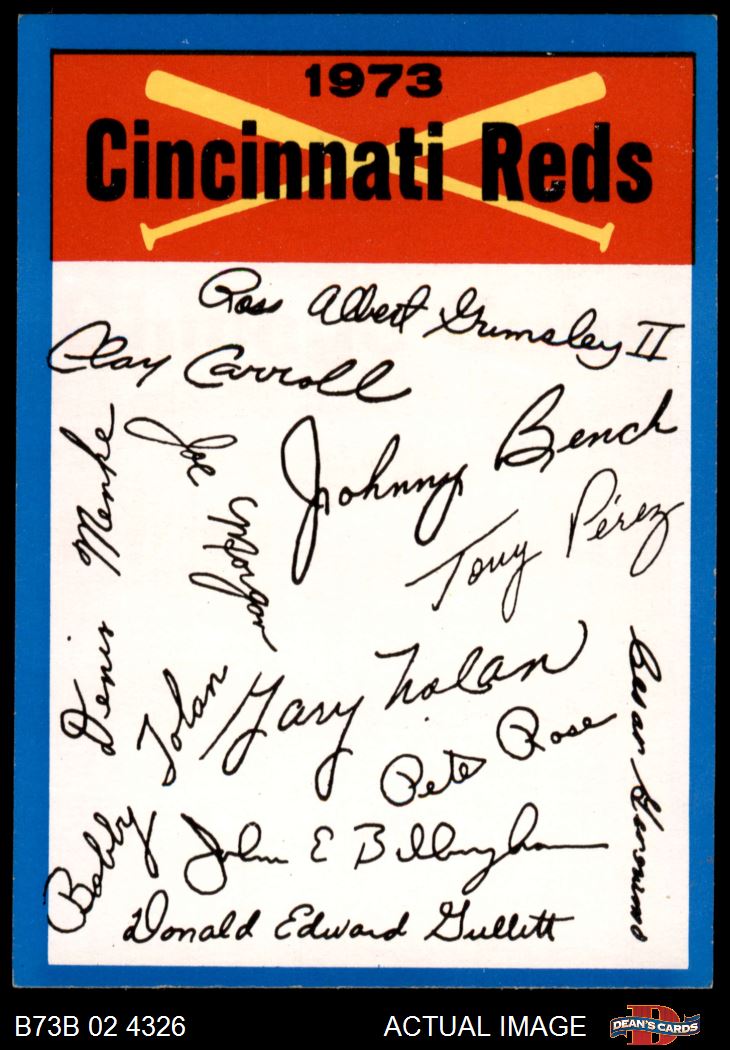 1973
Cincinnati Reds
Ross Albert Grimsley II
Clay Carroll
Johnny Bench
Denis Menke
Joe Morgan
Tony Pérez
Gary Nolan
Cesar Geronimo
Bobby Tolan
Pete Rose
John E Billingham
Donald Edward Gullett
B73B 02 4326
ACTUAL IMAGE
D
DEAN'S CARDS